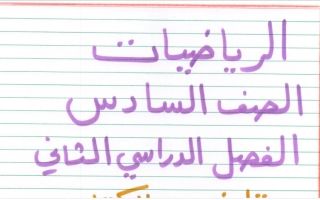 الرياضيات
الصف السادس
الفصل الدراسي الثاني